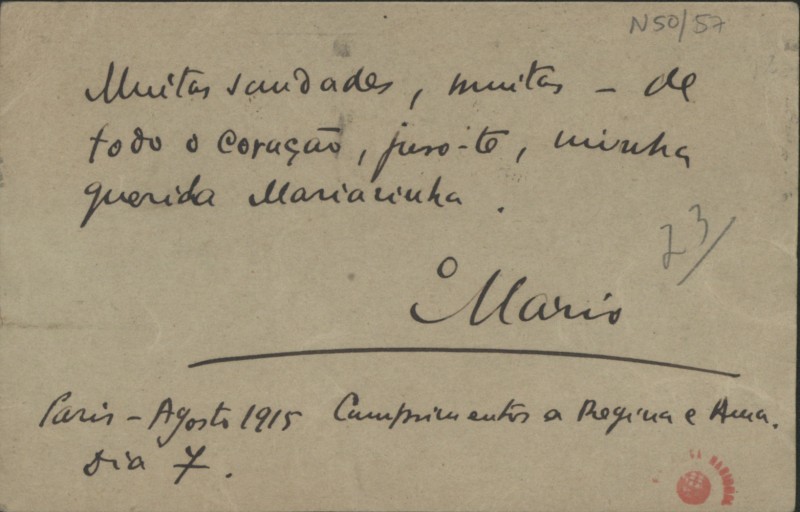 N50/57
Muitas saudades, muitas - de
todo o coração, juro-te, minha
querida Mariasinha.
23/
O Mario
Paris - Agosto 1915 Cumprimentos a Regina e Ama.
Dia 7.